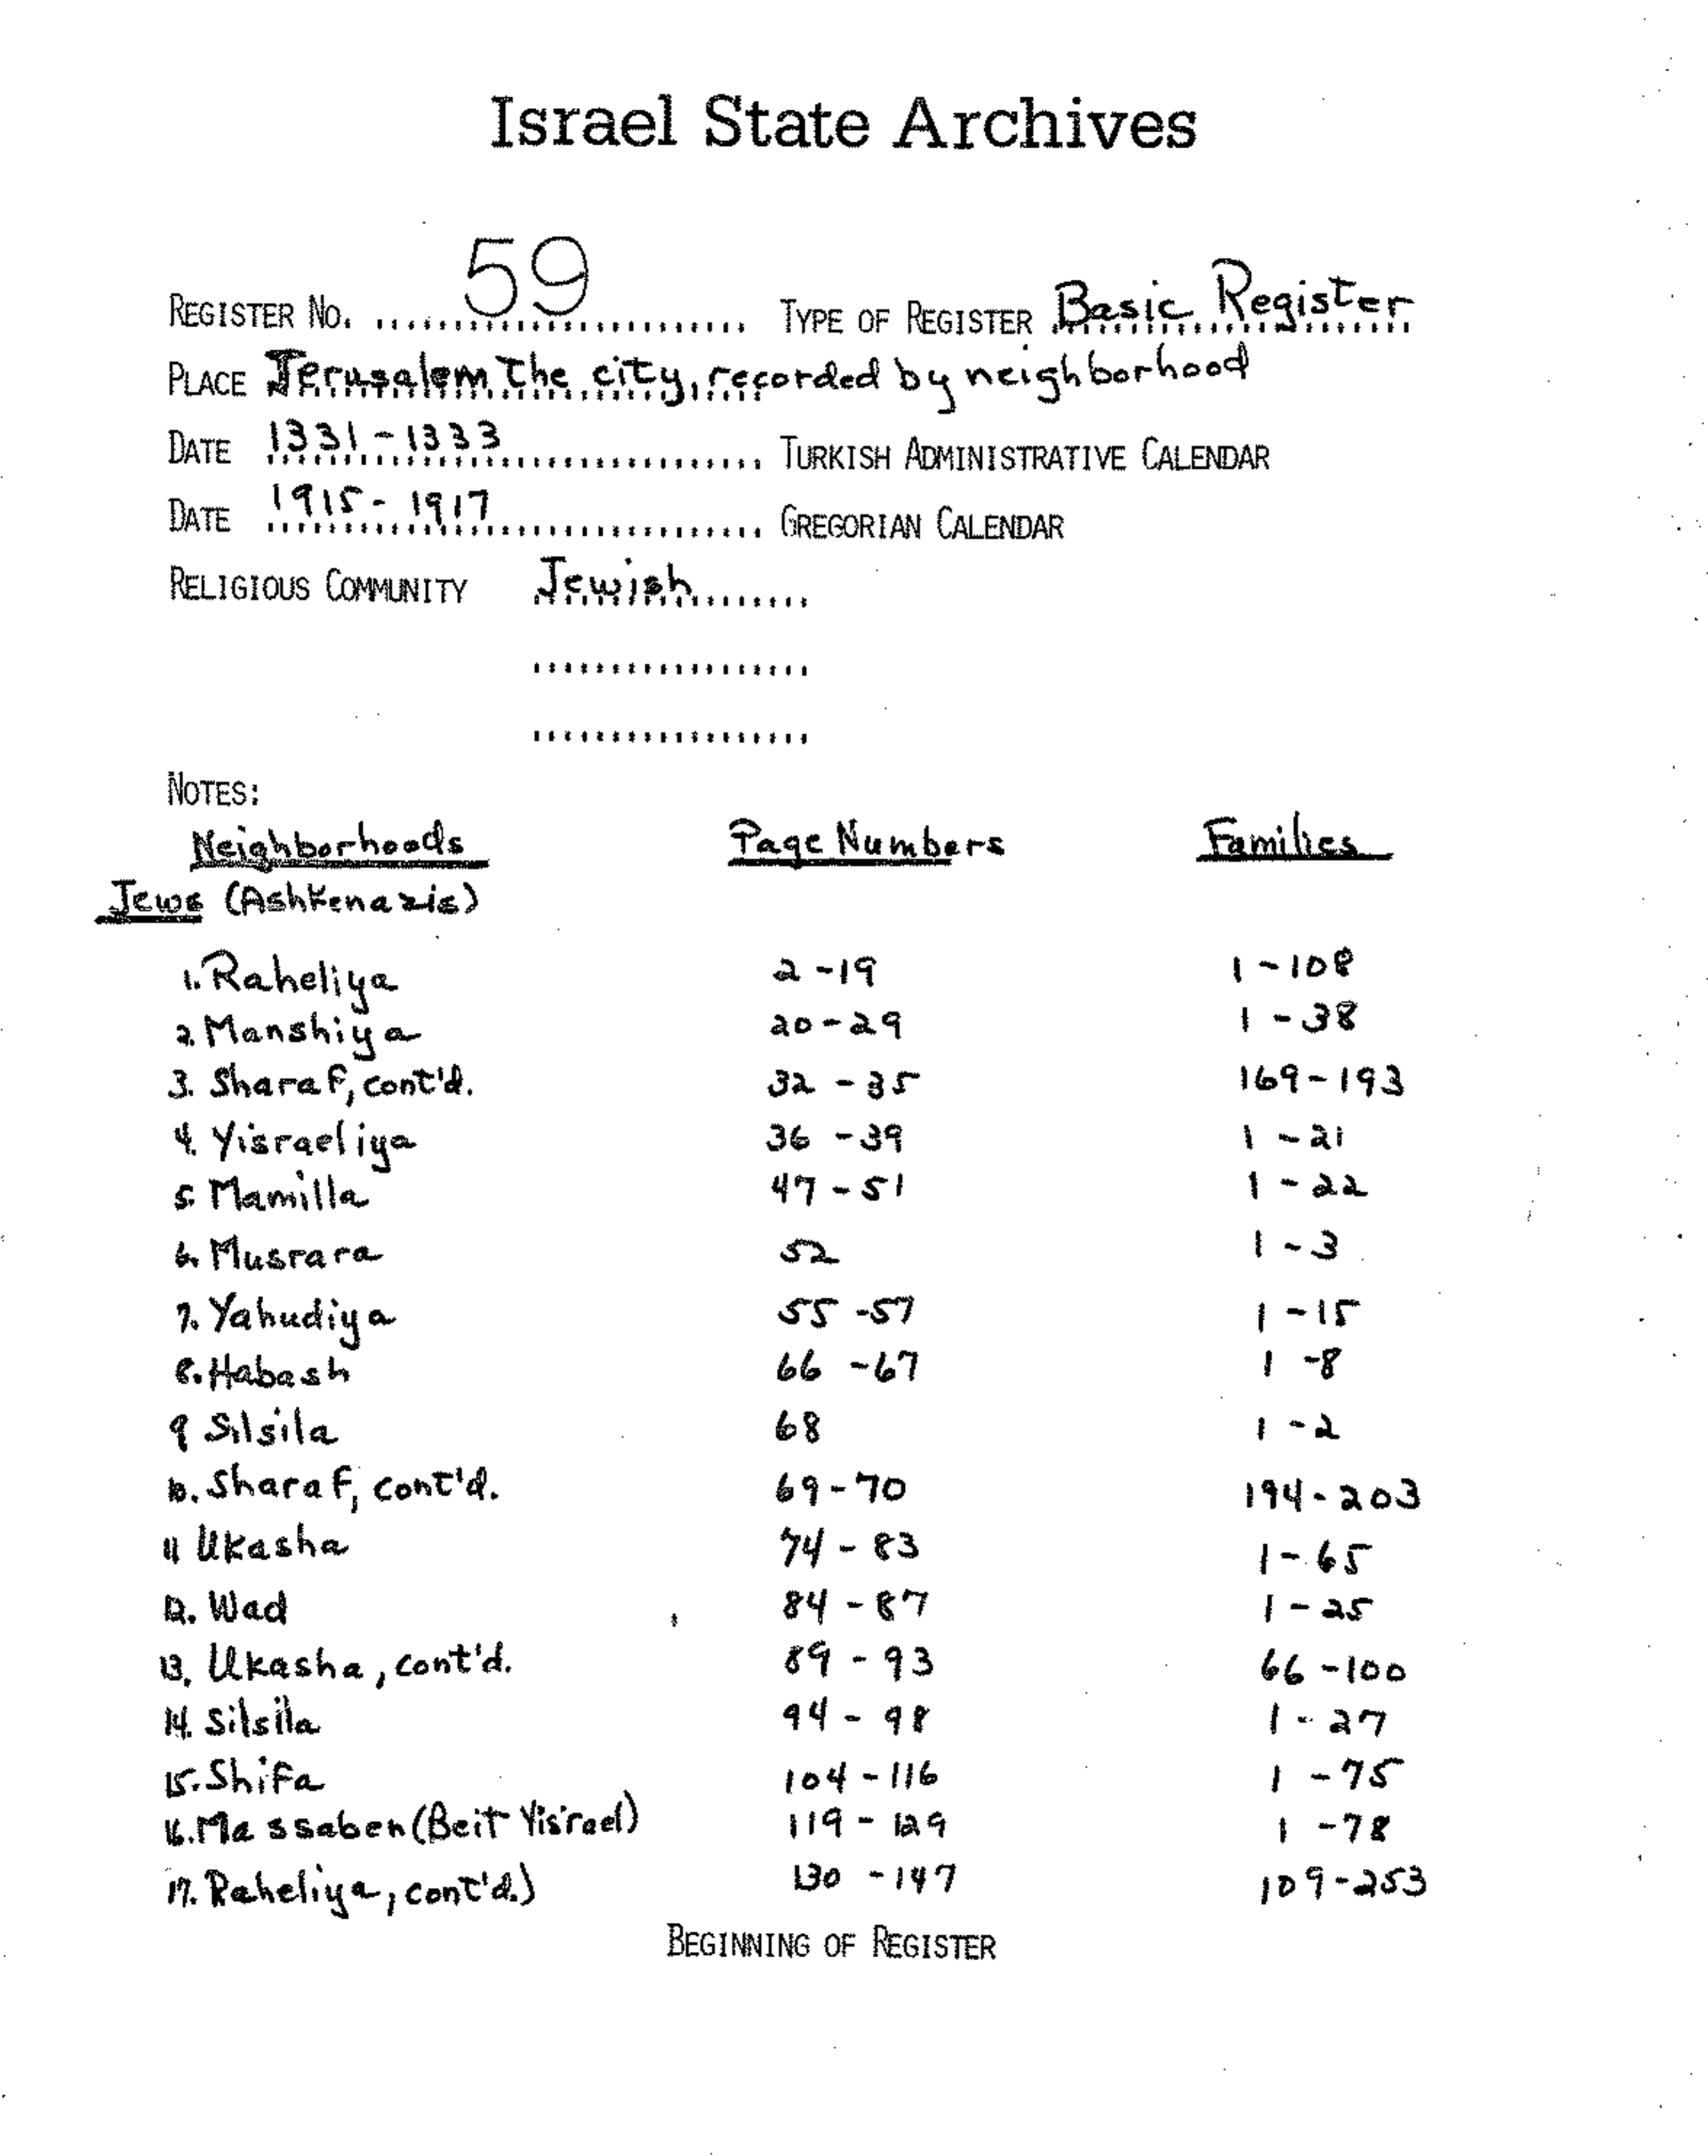 Israel State Archives
REGISTER NO. 59 TYPE OF REGISTER Basic Register
PLACE Jerusalem the city, recorded by neighborhood
DATE 1331-1333 TURKISH ADMINISTRATIVE CALENDAR
DATE 1915-1917 GREGORIAN CALENDAR
RELIGIOUS COMMUNITY Jewish
NOTES:
Neighborhoods Page Numbers Families
Jews (Ashkenazis)
1. Raheliya 2-19 1-108
2. Manshiya 20-29 1-38
3. Sharaf, cont'd. 32-35 169-193
4. Yisraeliya 36-39 1-21
5. Mamilla 47-51 1-22
6. Musrara 52 1-3
7. Yahudiya 55-57 1-15
8. Habash 66-67 1-8
9 Silsila 68 1-2
10. Sharaf, cont'd. 69-70 194-203
11 Ukasha 74-83 1-65
12. Wad 84-87 1-25
13. Ukasha, cont'd. 89-93 66-100
14. Silsila 94-98 1-27
15. Shifa 104-116 1-75
16. Massaben (Beit Yisrael) 119-129 1-78
17. Raheliya, cont'd.) 130-147 109-253
BEGINNING OF REGISTER